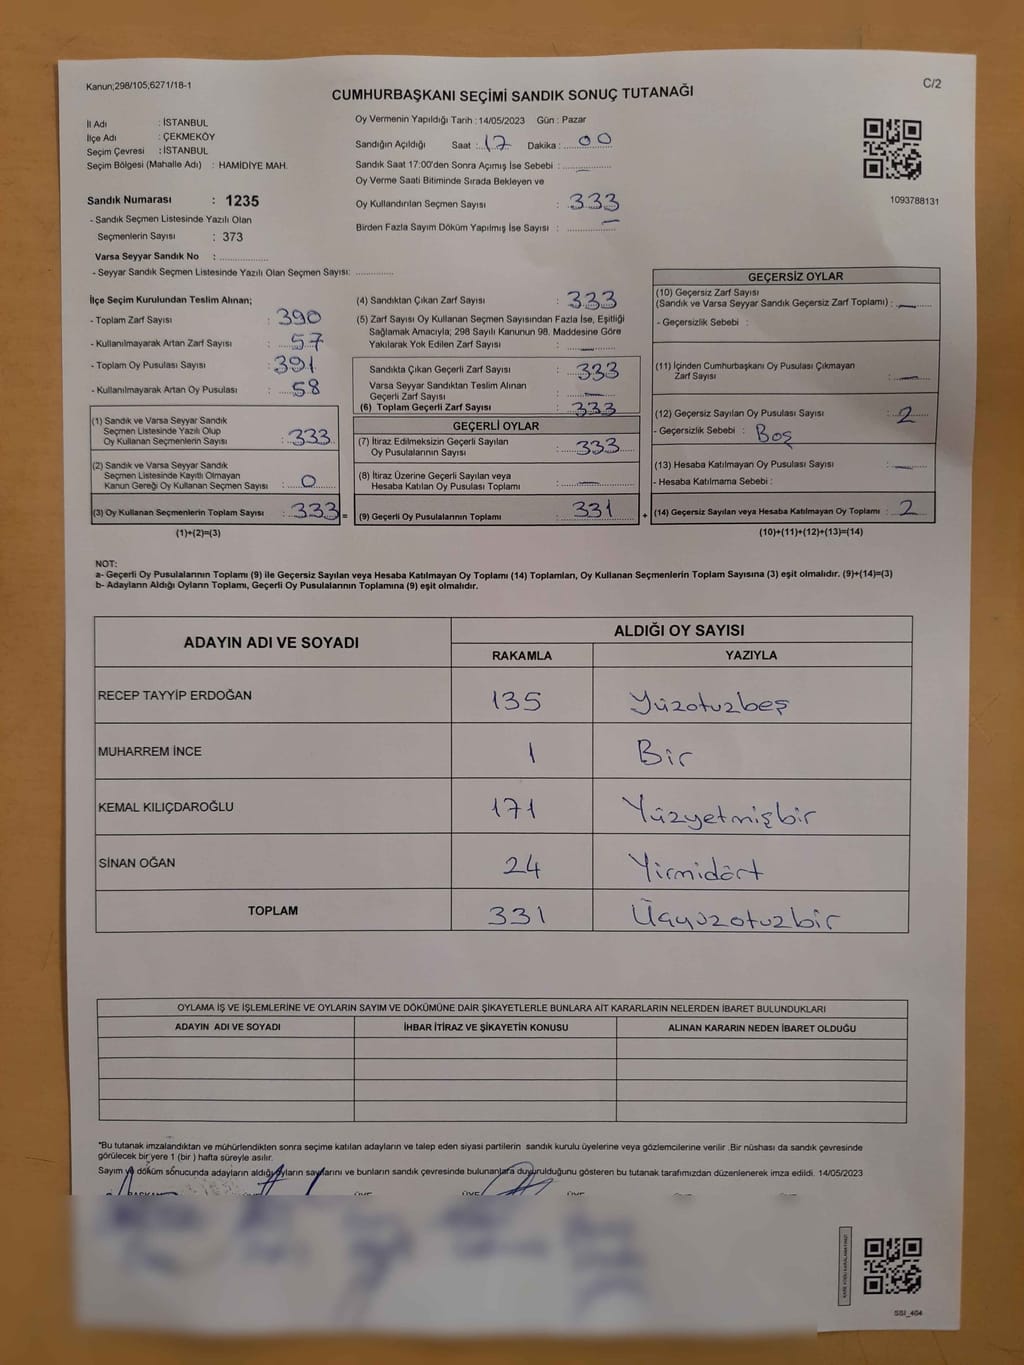 Kanun;298/105;6271/18-1
C/2
CUMHURBAŞKANI SEÇİMİ SANDIK SONUÇ TUTANAĞI
İl Adı : İSTANBUL
İlçe Adı : ÇEKMEKÖY
Seçim Çevresi : İSTANBUL
Seçim Bölgesi (Mahalle Adı) : HAMİDİYE MAH.
Oy Vermenin Yapıldığı Tarih : 14/05/2023 Gün : Pazar
Sandığın Açıldığı Saat : 17 Dakika : 00
Sandık Saat 17:00'den Sonra Açımış İse Sebebi :
Oy Verme Saati Bitiminde Sırada Bekleyen ve
Oy Kullandırılan Seçmen Sayısı : 333
Birden Fazla Sayım Döküm Yapılmış İse Sayısı : —
1093788131
Sandık Numarası : 1235
- Sandık Seçmen Listesinde Yazılı Olan
Seçmenlerin Sayısı : 373
Varsa Seyyar Sandık No :
- Seyyar Sandık Seçmen Listesinde Yazılı Olan Seçmen Sayısı:
İlçe Seçim Kurulundan Teslim Alınan;
- Toplam Zarf Sayısı : 390
- Kullanılmayarak Artan Zarf Sayısı : 57
- Toplam Oy Pusulası Sayısı : 391
- Kullanılmayarak Artan Oy Pusulası : 58
(1) Sandık ve Varsa Seyyar Sandık
Seçmen Listesinde Yazılı Olup
Oy Kullanan Seçmenlerin Sayısı : 333
(2) Sandık ve Varsa Seyyar Sandık
Seçmen Listesinde Kayıtlı Olmayan
Kanun Gereği Oy Kullanan Seçmen Sayısı : 0
(3) Oy Kullanan Seçmenlerin Toplam Sayısı : 333 =
(1)+(2)=(3)
(4) Sandıktan Çıkan Zarf Sayısı : 333
(5) Zarf Sayısı Oy Kullanan Seçmen Sayısından Fazla İse, Eşitliği
Sağlamak Amacıyla; 298 Sayılı Kanunun 98. Maddesine Göre
Yakılarak Yok Edilen Zarf Sayısı : —
Sandıkta Çıkan Geçerli Zarf Sayısı : 333
Varsa Seyyar Sandıktan Teslim Alınan
Geçerli Zarf Sayısı : —
(6) Toplam Geçerli Zarf Sayısı : 333
GEÇERLİ OYLAR
(7) İtiraz Edilmeksizin Geçerli Sayılan
Oy Pusulalarının Sayısı : 333
(8) İtiraz Üzerine Geçerli Sayılan veya
Hesaba Katılan Oy Pusulası Toplamı : —
(9) Geçerli Oy Pusulalarının Toplamı : 331 +
GEÇERSİZ OYLAR
(10) Geçersiz Zarf Sayısı
(Sandık ve Varsa Seyyar Sandık Geçersiz Zarf Toplamı) : —
- Geçersizlik Sebebi :
(11) İçinden Cumhurbaşkanı Oy Pusulası Çıkmayan
Zarf Sayısı : —
(12) Geçersiz Sayılan Oy Pusulası Sayısı : 2
- Geçersizlik Sebebi : Boş
(13) Hesaba Katılmayan Oy Pusulası Sayısı : —
- Hesaba Katılmama Sebebi :
(14) Geçersiz Sayılan veya Hesaba Katılmayan Oy Toplamı : 2
(10)+(11)+(12)+(13)=(14)
NOT:
a- Geçerli Oy Pusulalarının Toplamı (9) ile Geçersiz Sayılan veya Hesaba Katılmayan Oy Toplamı (14) Toplamları, Oy Kullanan Seçmenlerin Toplam Sayısına (3) eşit olmalıdır. (9)+(14)=(3)
b- Adayların Aldığı Oyların Toplamı, Geçerli Oy Pusulalarının Toplamına (9) eşit olmalıdır.
ADAYIN ADI VE SOYADI
ALDIĞI OY SAYISI
RAKAMLA YAZIYLA
RECEP TAYYİP ERDOĞAN 135 Yüzotuzbeş
MUHARREM İNCE 1 Bir
KEMAL KILIÇDAROĞLU 171 Yüzyetmişbir
SİNAN OĞAN 24 Yirmidört
TOPLAM 331 Üçyüzotuzbir
OYLAMA İŞ VE İŞLEMLERİNE VE OYLARIN SAYIM VE DÖKÜMÜNE DAİR ŞİKAYETLERLE BUNLARA AİT KARARLARIN NELERDEN İBARET BULUNDUKLARI
ADAYIN ADI VE SOYADI İHBAR İTİRAZ VE ŞİKAYETİN KONUSU ALINAN KARARIN NEDEN İBARET OLDUĞU
*Bu tutanak imzalandıktan ve mühürlendikten sonra seçime katılan adayların ve talep eden siyasi partilerin sandık kurulu üyelerine veya gözlemcilerine verilir .Bir nüshası da sandık çevresinde
görülecek bir yere 1 (bir ) hafta süreyle asılır.
Sayım ve döküm sonucunda adayların aldığı oyların sayılarını ve bunların sandık çevresinde bulunanlara duyurulduğunu gösteren bu tutanak tarafımızdan düzenlenerek imza edildi. 14/05/2023
SSI_464